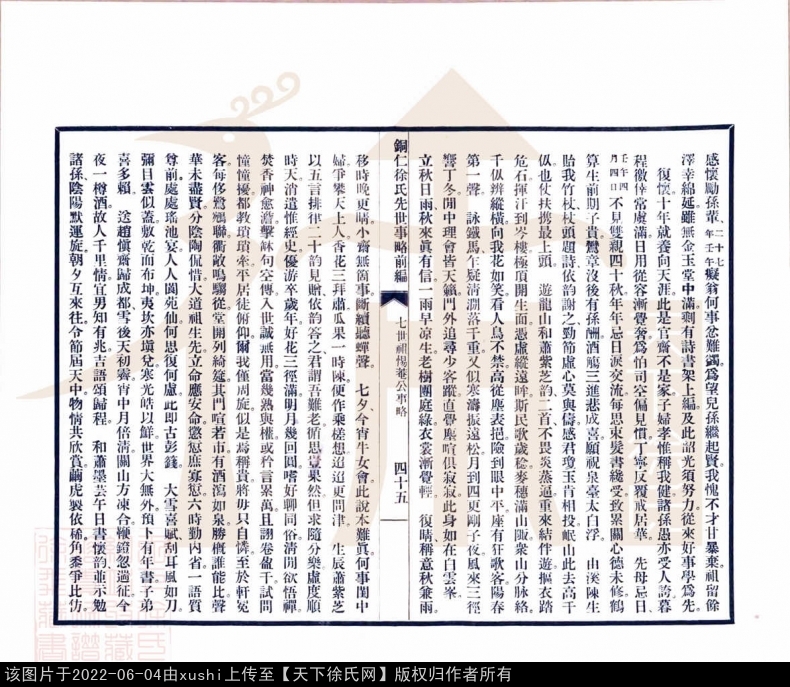 感懷勵孫輩二首 二十七年壬午 癡翁何事忿難蠲爲望兒孫繼起賢我愧不才甘暴棄祖留餘
澤幸綿延雖無金玉堂中滿剩有詩書架上編及此詔光須努力從來好事學爲先
復懷十年就養向天涯此是官齋不是家子婦孝惟稱我健諸孫愚亦受人誇暮
程徼倖常虞滿日用從容漸覺奢爲怕司空偏見慣丁寧反覆戒居華 先母忌日
壬午四月四日 不見雙親四十秋年年忌日淚交流每思束髮書綫受致累關心德未修鶴
算生前期子貴鸞章沒後有孫酬酒觴三進悲成喜願祝泉臺太白浮 由溪陳生
貽我竹杖杖頭題詩依韵謝之勁節虛心莫與儔感君瓊玉肯相投岷山此去高千
仭也仗扶攙最上頭 遊龍山和蕭紫芝韵二首不畏炎蒸逼重來結伴遊摳衣踏
危石揮汗到岑樓極頂開生面憑虛縱遠眸斯民歌歲稔麥穗滿山陬衆山分脈絡
千仭辨縱橫向我花如笑看人鳥不禁高從塵表挹險到眼中平座有狂歌客陽春
第一聲 詠鐵馬乍疑清澗落千重又似寒濤振遠松月到四更剛子夜風來三徑
響丁冬閒中理會皆天籟門外追尋少客蹤直覺塵喧俱寂寂此身如在白雲峯
立秋日雨秋來眞有信一雨早凉生老樹團庭綠衣裳漸覺輕 復晴稱意秋兼雨
銅仁徐氏先世事略前編
七世祖惕菴公事略
四十五
移時晚更晴小齋無箇事斷續聽蟬聲 七夕今宵牛女會此說本難眞何事閨中
婦爭攀天上人香花三拜肅瓜果一時陳便作乘槎想迢迢更問津 生辰蕭紫芝
以五言排律二十韵見贈依韵答之君謂吾難老俯思豈果然但求隨分樂虛度順
時天消遣惟經史優游卒歲年好花三徑滿明月幾回圓嗜好聊同俗清閒欲悟禪
焚香神愈澹擊鉢句空傳入世誠無用當幾熟與權或矜言累萬且詡卷盈千試問
憧憧擾都教瑣瑣牽平居徒俯仰爾我僅周旋似是焉稱貴將毋只自憐至於軒冕
客每侈鷺鵷聯衢敞鳴騶從堂開列綺筵其門喧若市有酒瀉如泉勝槪誰能比聲
華未盡賢分陰陶侃惜大道祖生先立命應安命愆愆庶寡愆六時勤內省一語質
尊前處處瑤池宴人人閬苑仙何思復何慮此即古彭籛 大雪喜賦刮耳風如刀
彌目雲似蓋敷乾面布坤夷坎亦塡兌寒光皓以鮮世界大無外預卜有年書子弟
喜多賴 送趙愼齋歸成都雪後天初霽宵中月倍清關山方凍合鞭鐙忽過征今
夜一樽酒故人千里情宜男知有兆吉語頌歸程 和蕭墨芸午日書懷韵並示勉
諸孫陰陽默運旋朝夕互來往令節屆天中物情共欣賞繭虎製依稀角黍爭比仿
该图片于2022-06-04由xushi上传至【天下徐氏网】版权归作者所有